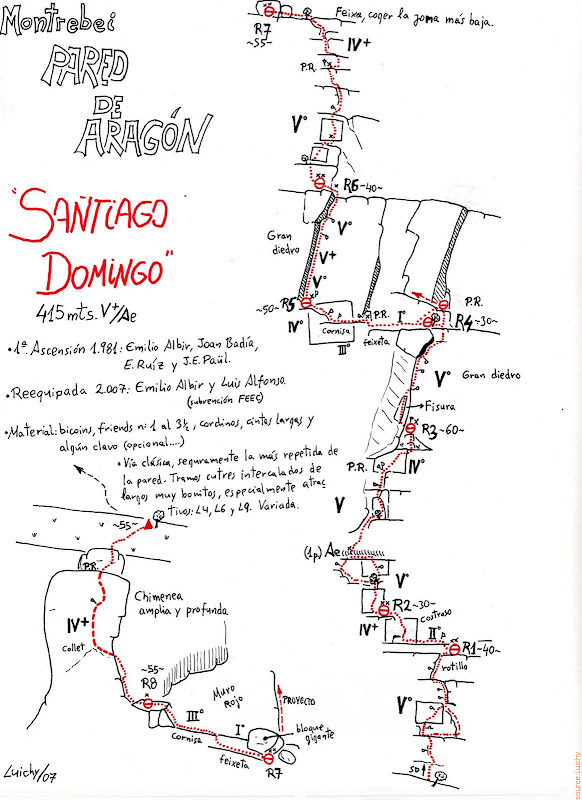 Montrebei
PARED
DE
ARAGÓN
"SANTIAGO
DOMINGO"
415 mts. V+/Ae
• 1ª. Ascensión 1.981: Emilio Albir, Joan Badía,
E. Ruíz y J.E. Paül.
• Reequipada 2.007: Emilio Albir y Luis Alfonso.
(subvención FEEC)
• Material: bicoins, friends nº 1 al 3½, cordinos, cintas largas y
algún clavo (opcional....)
• Vía clásica, seguramente la más repetida de
la pared. Tramos cutres intercalados de
largos muy bonitos, especialmente atrac
tivos: L4, L6 y L9. Variada.
Feixa, coger la zona más baja.
R7
~55~
IV+
P.R.
V°
R6 ~40~
Gran
diedro
V°
V+
V°
~50~ R5
IV°
cornisa
III°
P.R.
I°
feixeta
P.R.
R4 ~30~
V°
Gran diedro
Fisura
R3 ~60~
P.R.
IV°
V
(1p) Ae
V°
R2 ~30~
costroso
IV+
II°
R1 ~40~
rotillo
V°
SD
~55~
P.R.
Chimenea
amplia y profunda
IV+
collet
~55~
R8
Muro
Rojo
III°
Cornisa
I°
feixeta
PROYECTO
bloque
gigante
R7
Luichy/07
source: Luichy